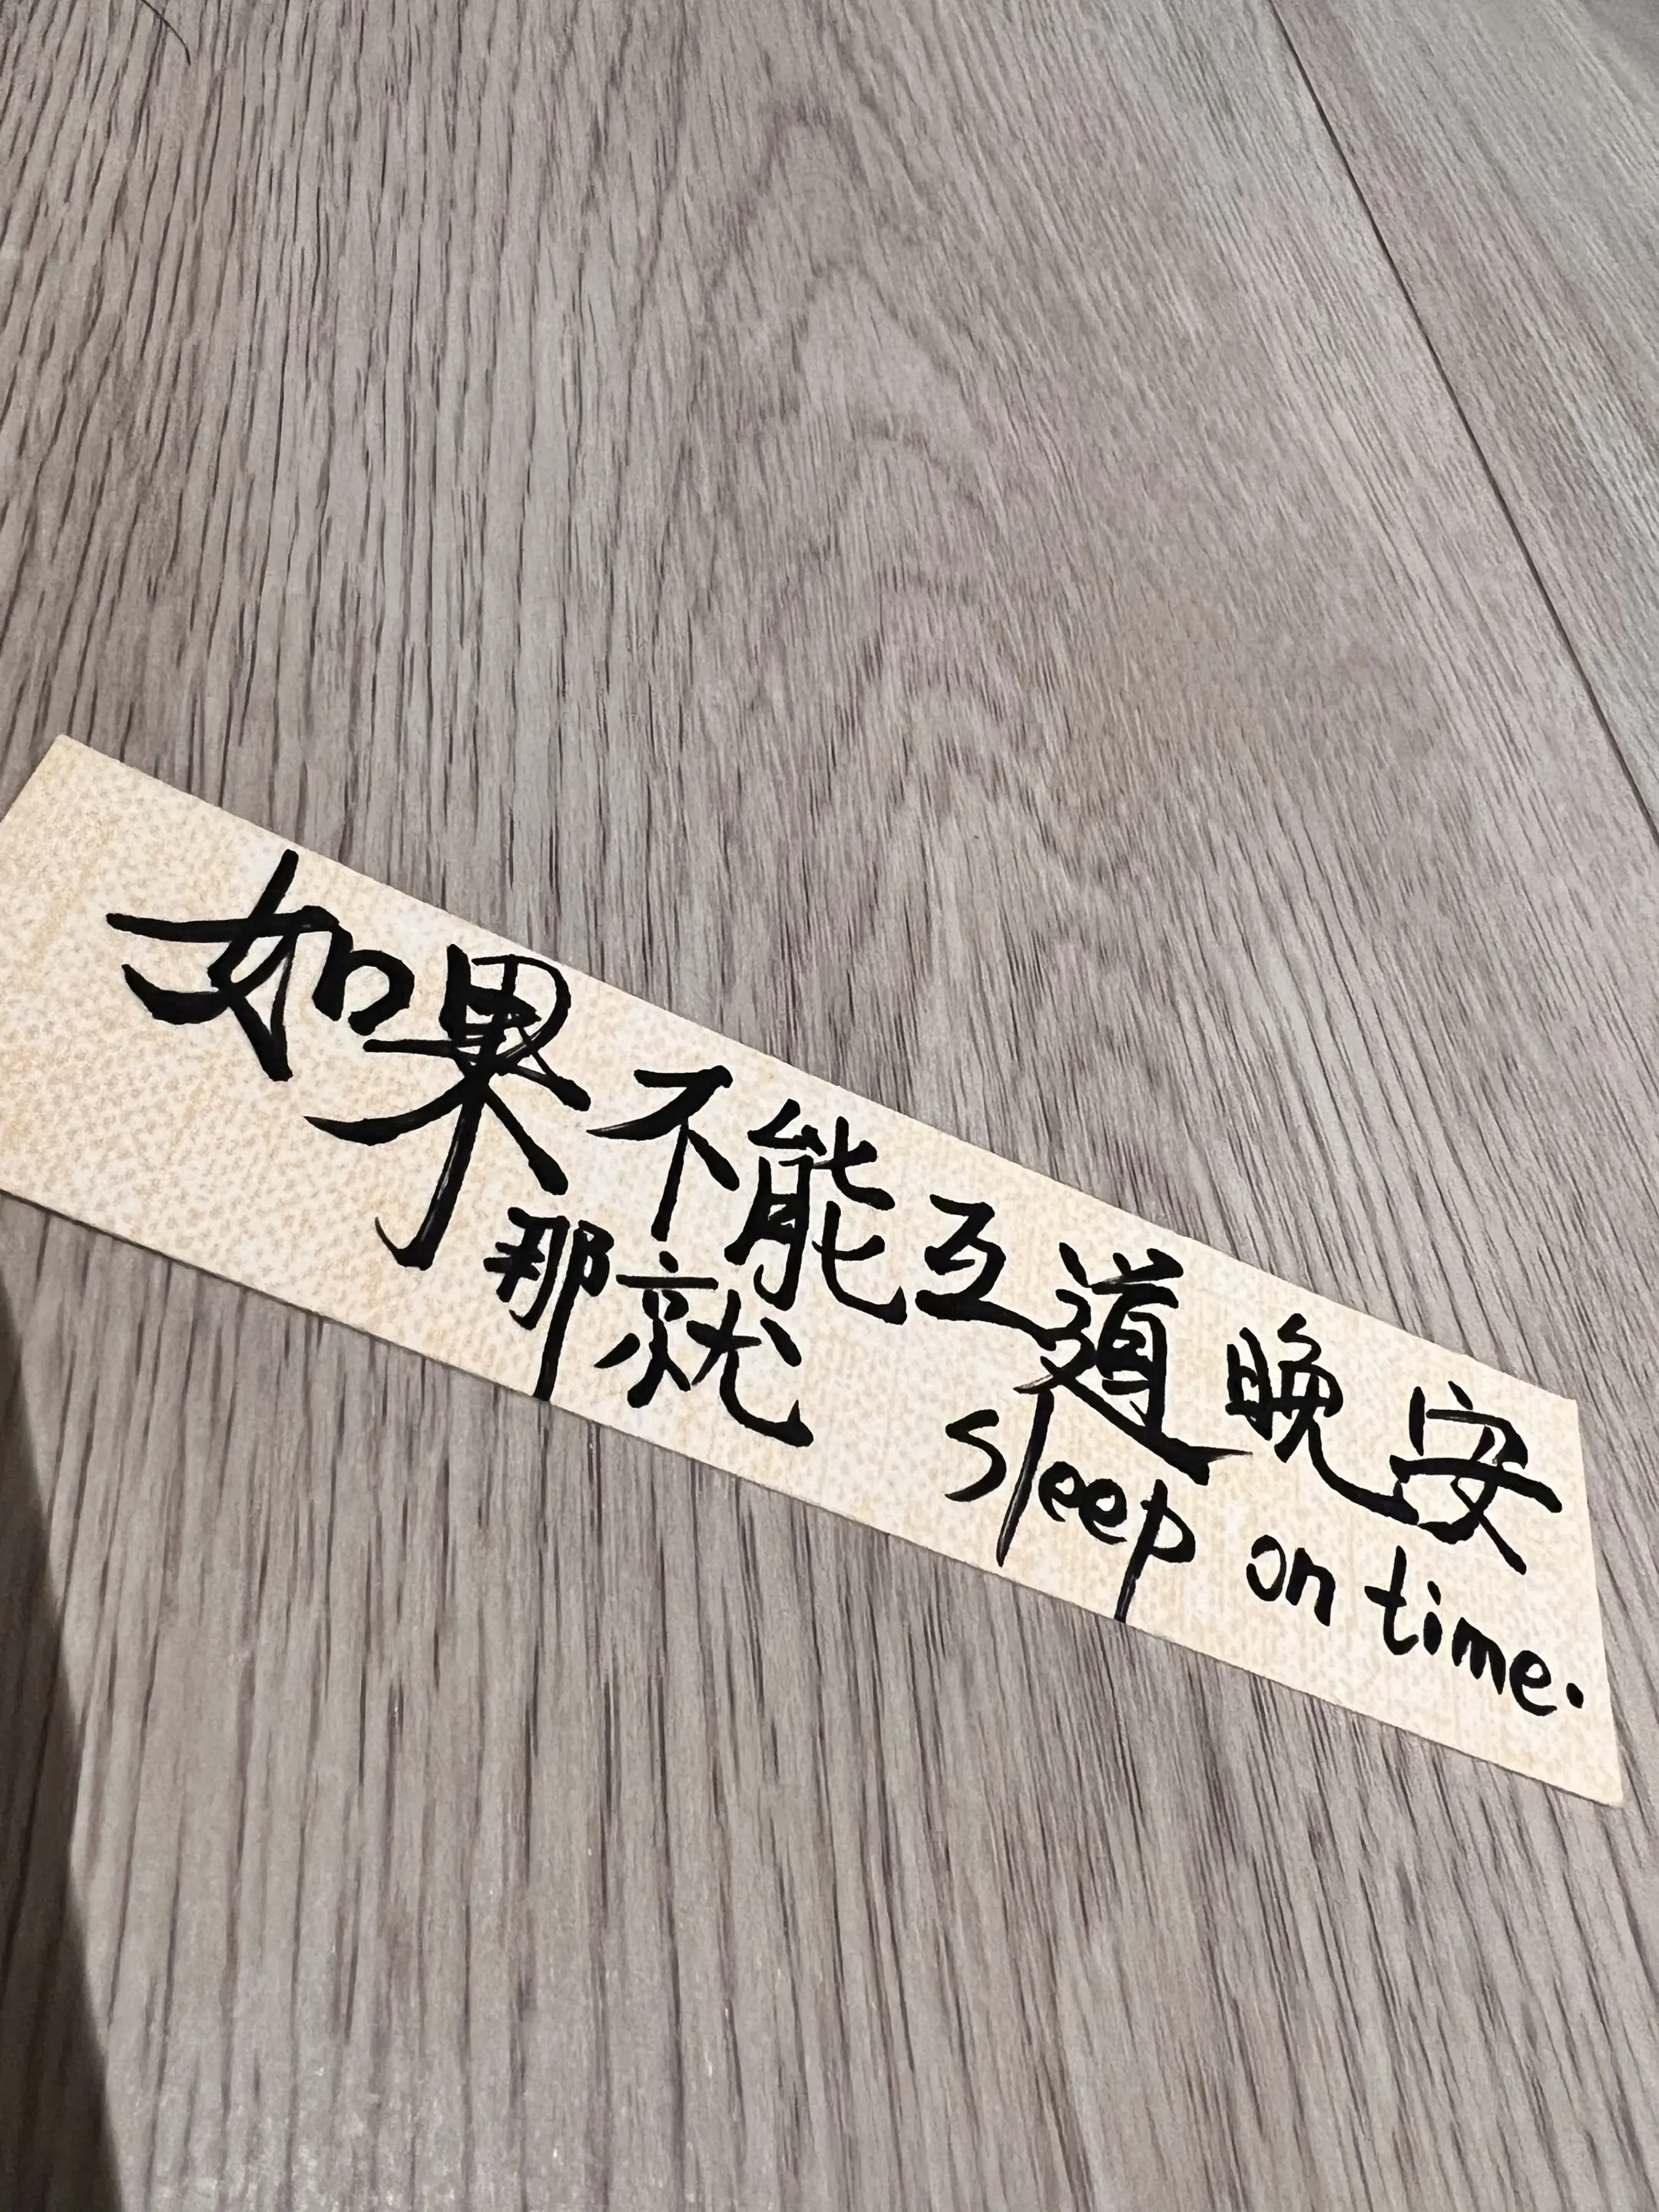 如果不能互道晚安
那就 sleep on time.